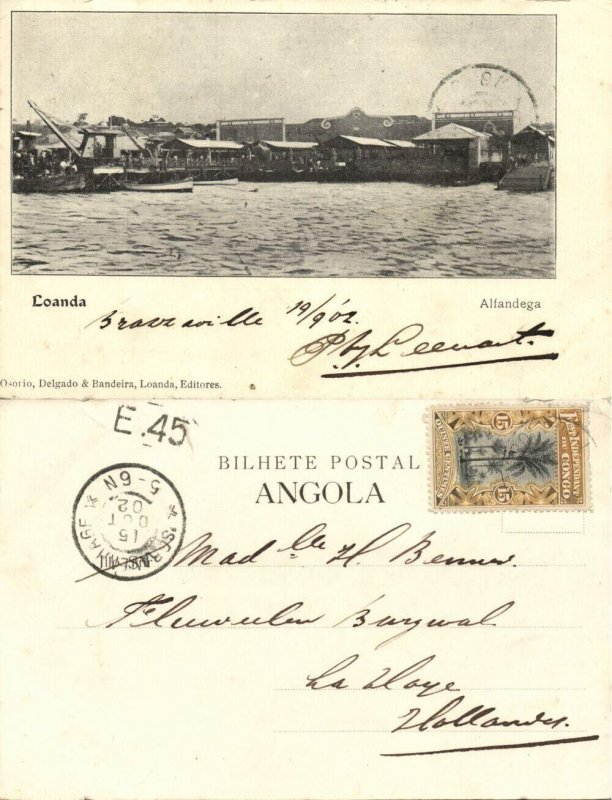 Loanda
Alfandega
Brazzaville 19/9 02
Osorio, Delgado & Bandeira, Loanda, Editores.
E.45
BILHETE POSTAL
ANGOLA
15
15
CONGO
'S GRAVENHAGE
5-6N
15
OCT
02
Mad lle H.
Fluweelen Burgwal
La Haye
Hollande